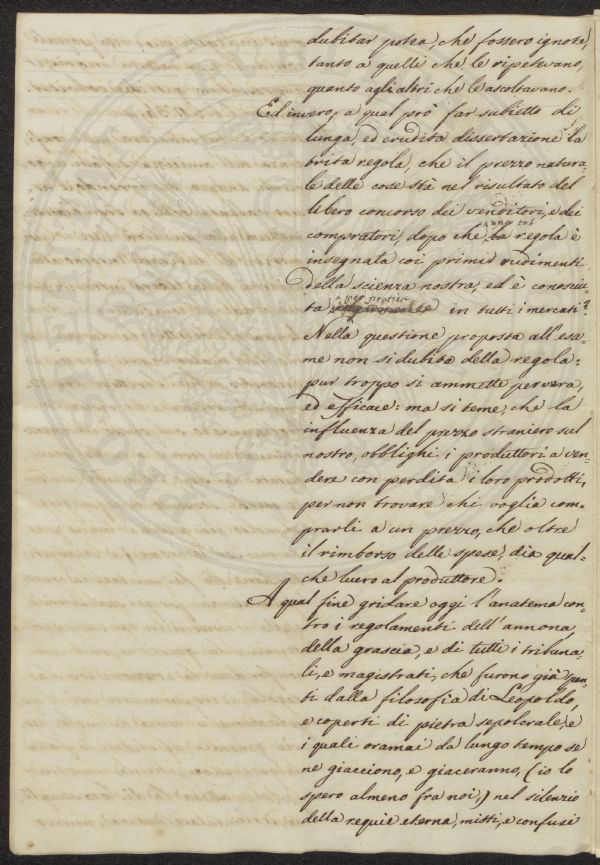 dubitar potea, che fossero ignote,
tanto a quelli che le ripetevano,
quanto agli altri che le ascoltavano.
Ed invero, a qual prò far subietto di
lunga, ed erudita dissertazione la
trita regola, che il prezzo natura=
le delle cose stà nel risultato del
libero concorso dei venditori, e dei
compratori, dopo che una tal regola è
insegnata coi primi rudimenti
della scienza nostra, ed è conosciu=
ta per pratica in tutti i mercati?
Nella questione proposta all'esa=
me non si dubita della regola:
pur troppo si ammette per vera,
ed efficace: ma si teme, che la
influenza del prezzo straniero sul
nostro, obblighi i produttori a ven=
dere con perdita i loro prodotti,
per non trovare chi voglia com=
prarli a un prezzo, che oltre
il rimborso delle spese, dia qual=
che lucro al produttore.
A qual fine gridare oggi l'anatema con=
tro i regolamenti dell'annona,
della grascia, e di tutti i tribuna=
li, e magistrati, che furono già spen=
ti dalla filosofia di Leopoldo,
e coperti di pietra sepolcrale, e
i quali oramai da lungo tempo se
ne giacciono, e giaceranno, (io lo
spero almeno fra noi,) nel silenzio
della requie eterna, misti, e confusi